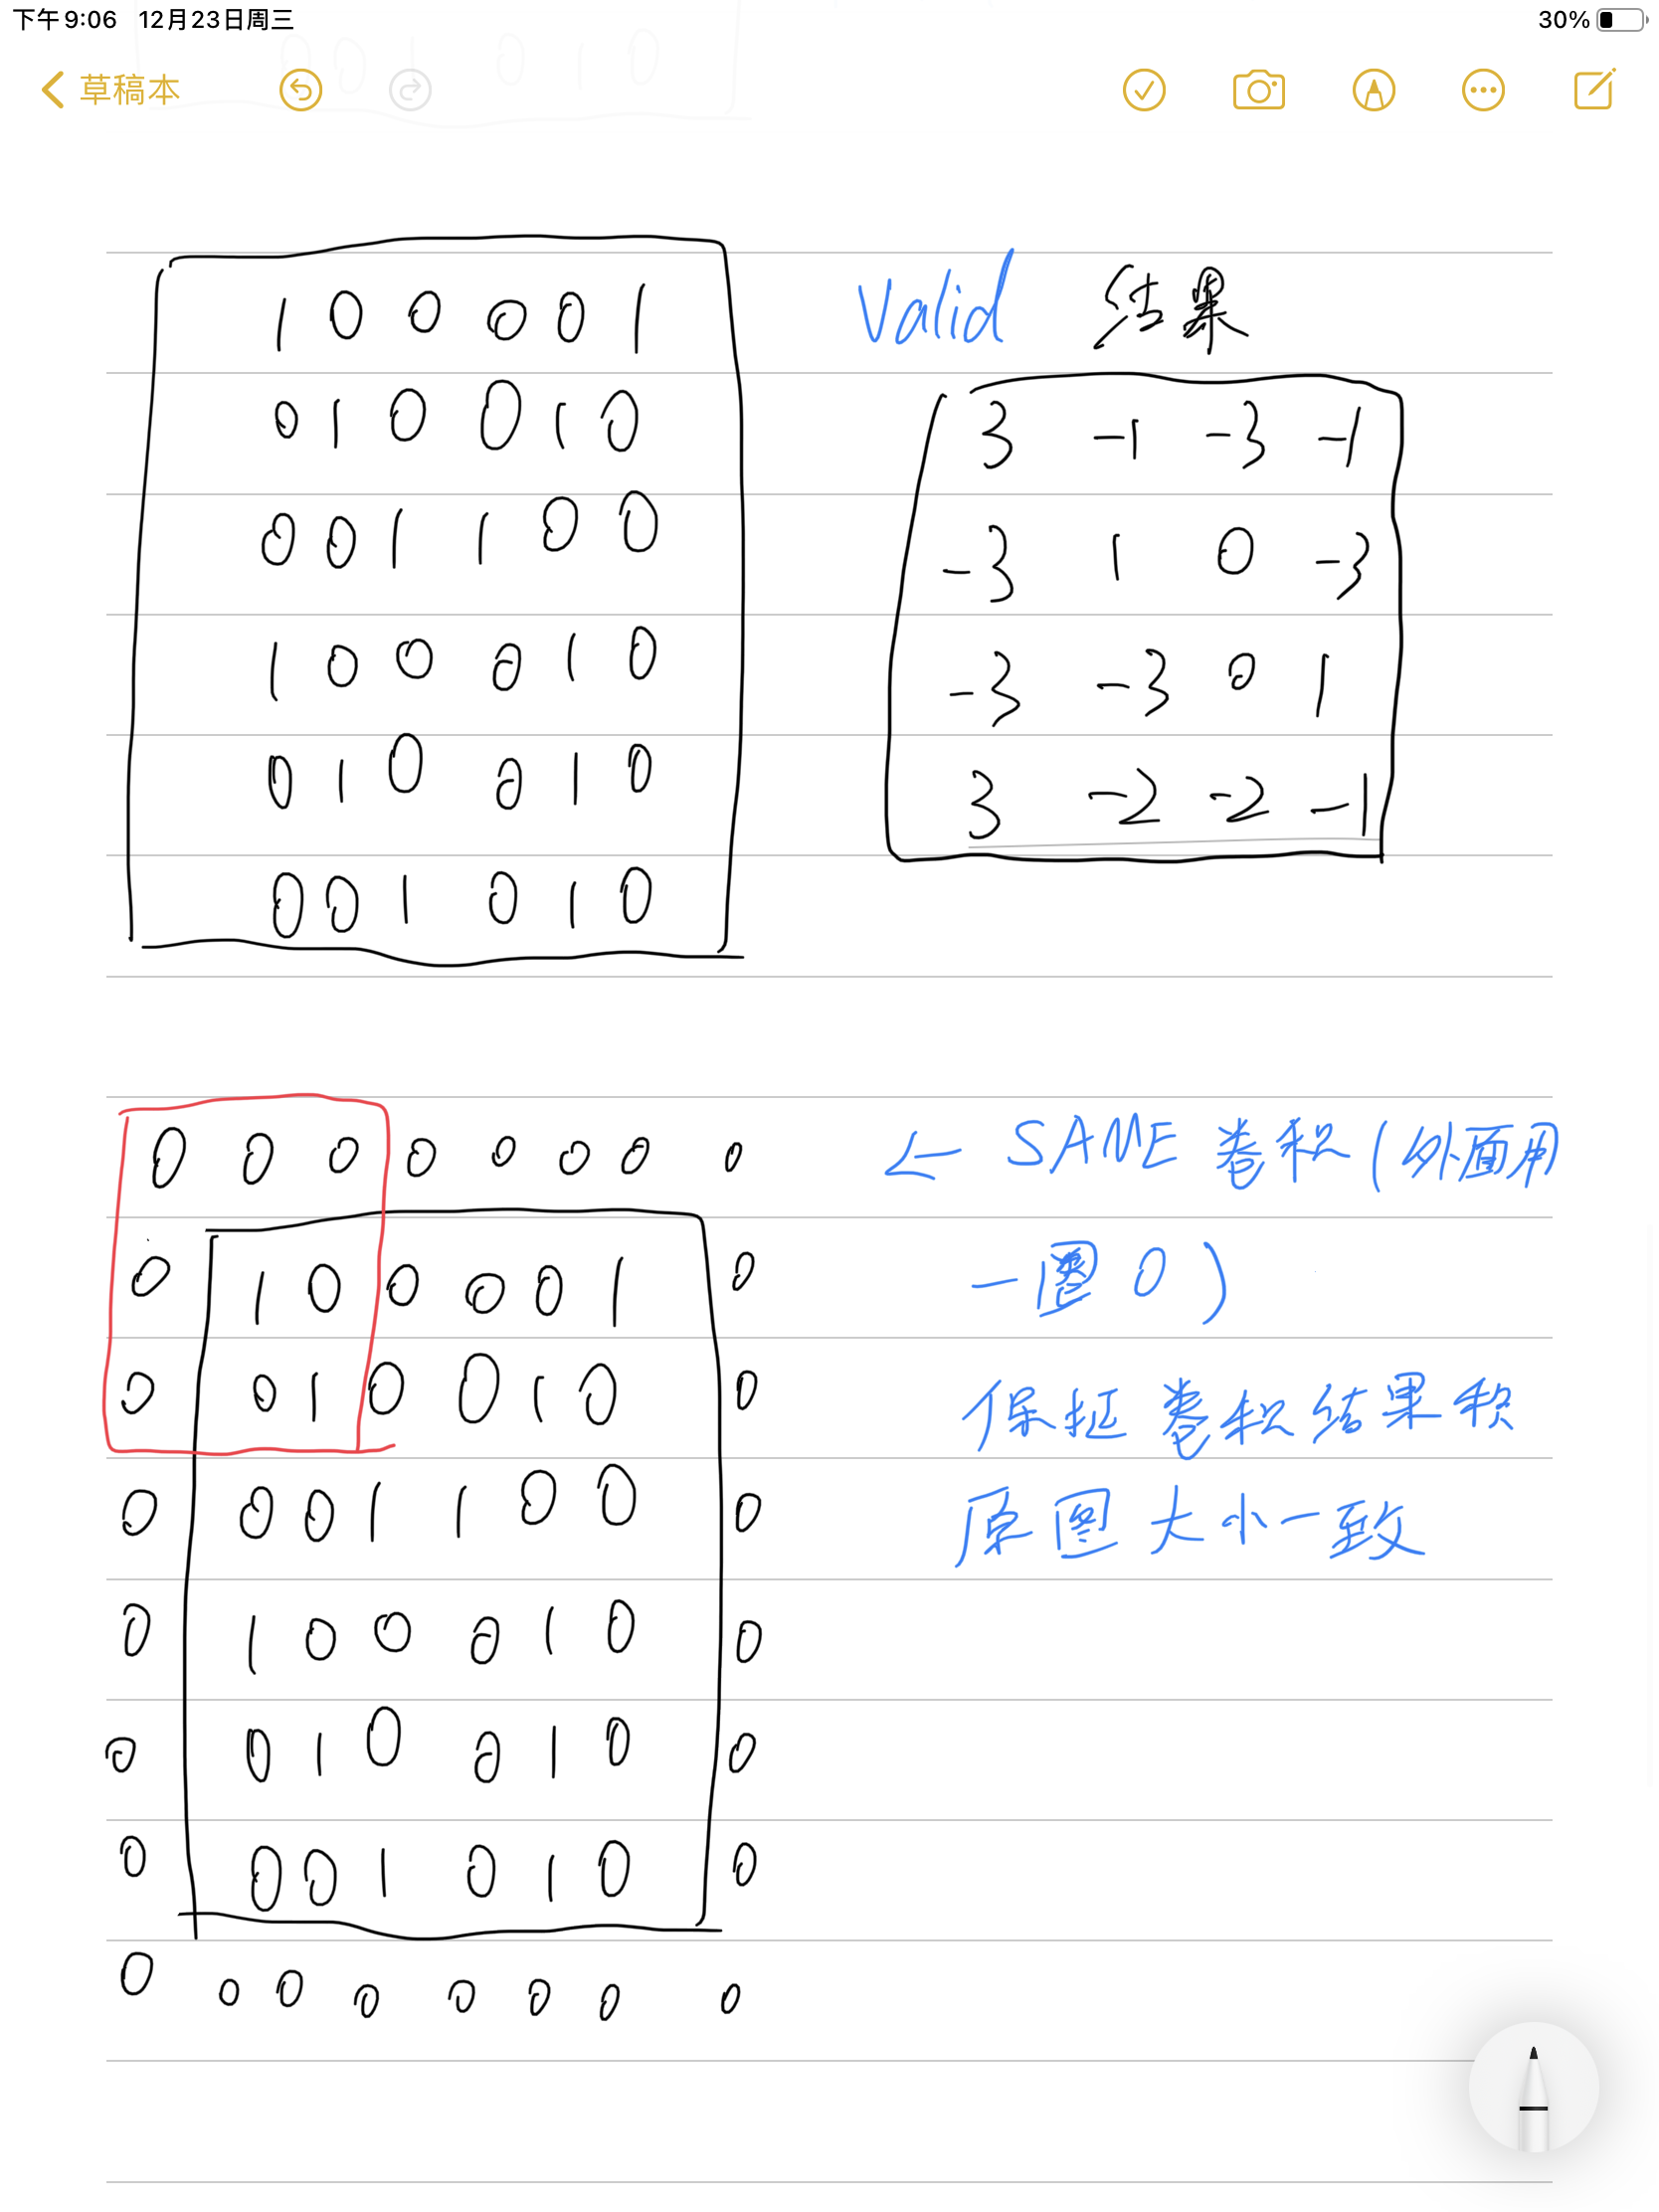 下午9:06 12月23日周三 30%
草稿本
1 0 0 0 0 1
0 1 0 0 1 0
0 0 1 1 0 0
1 0 0 0 1 0
0 1 0 0 1 0
0 0 1 0 1 0
Valid 结果
3 -1 -3 -1
-3 1 0 -3
-3 -3 0 1
3 -2 -2 -1
0 0 0 0 0 0 0 0
0 1 0 0 0 0 1 0
0 0 1 0 0 1 0 0
0 0 0 1 1 0 0 0
0 1 0 0 0 1 0 0
0 0 1 0 0 1 0 0
0 0 0 1 0 1 0 0
0 0 0 0 0 0 0 0
← SAME 卷积(外面用
一圈 0)
保证卷积结果和
原图大小一致